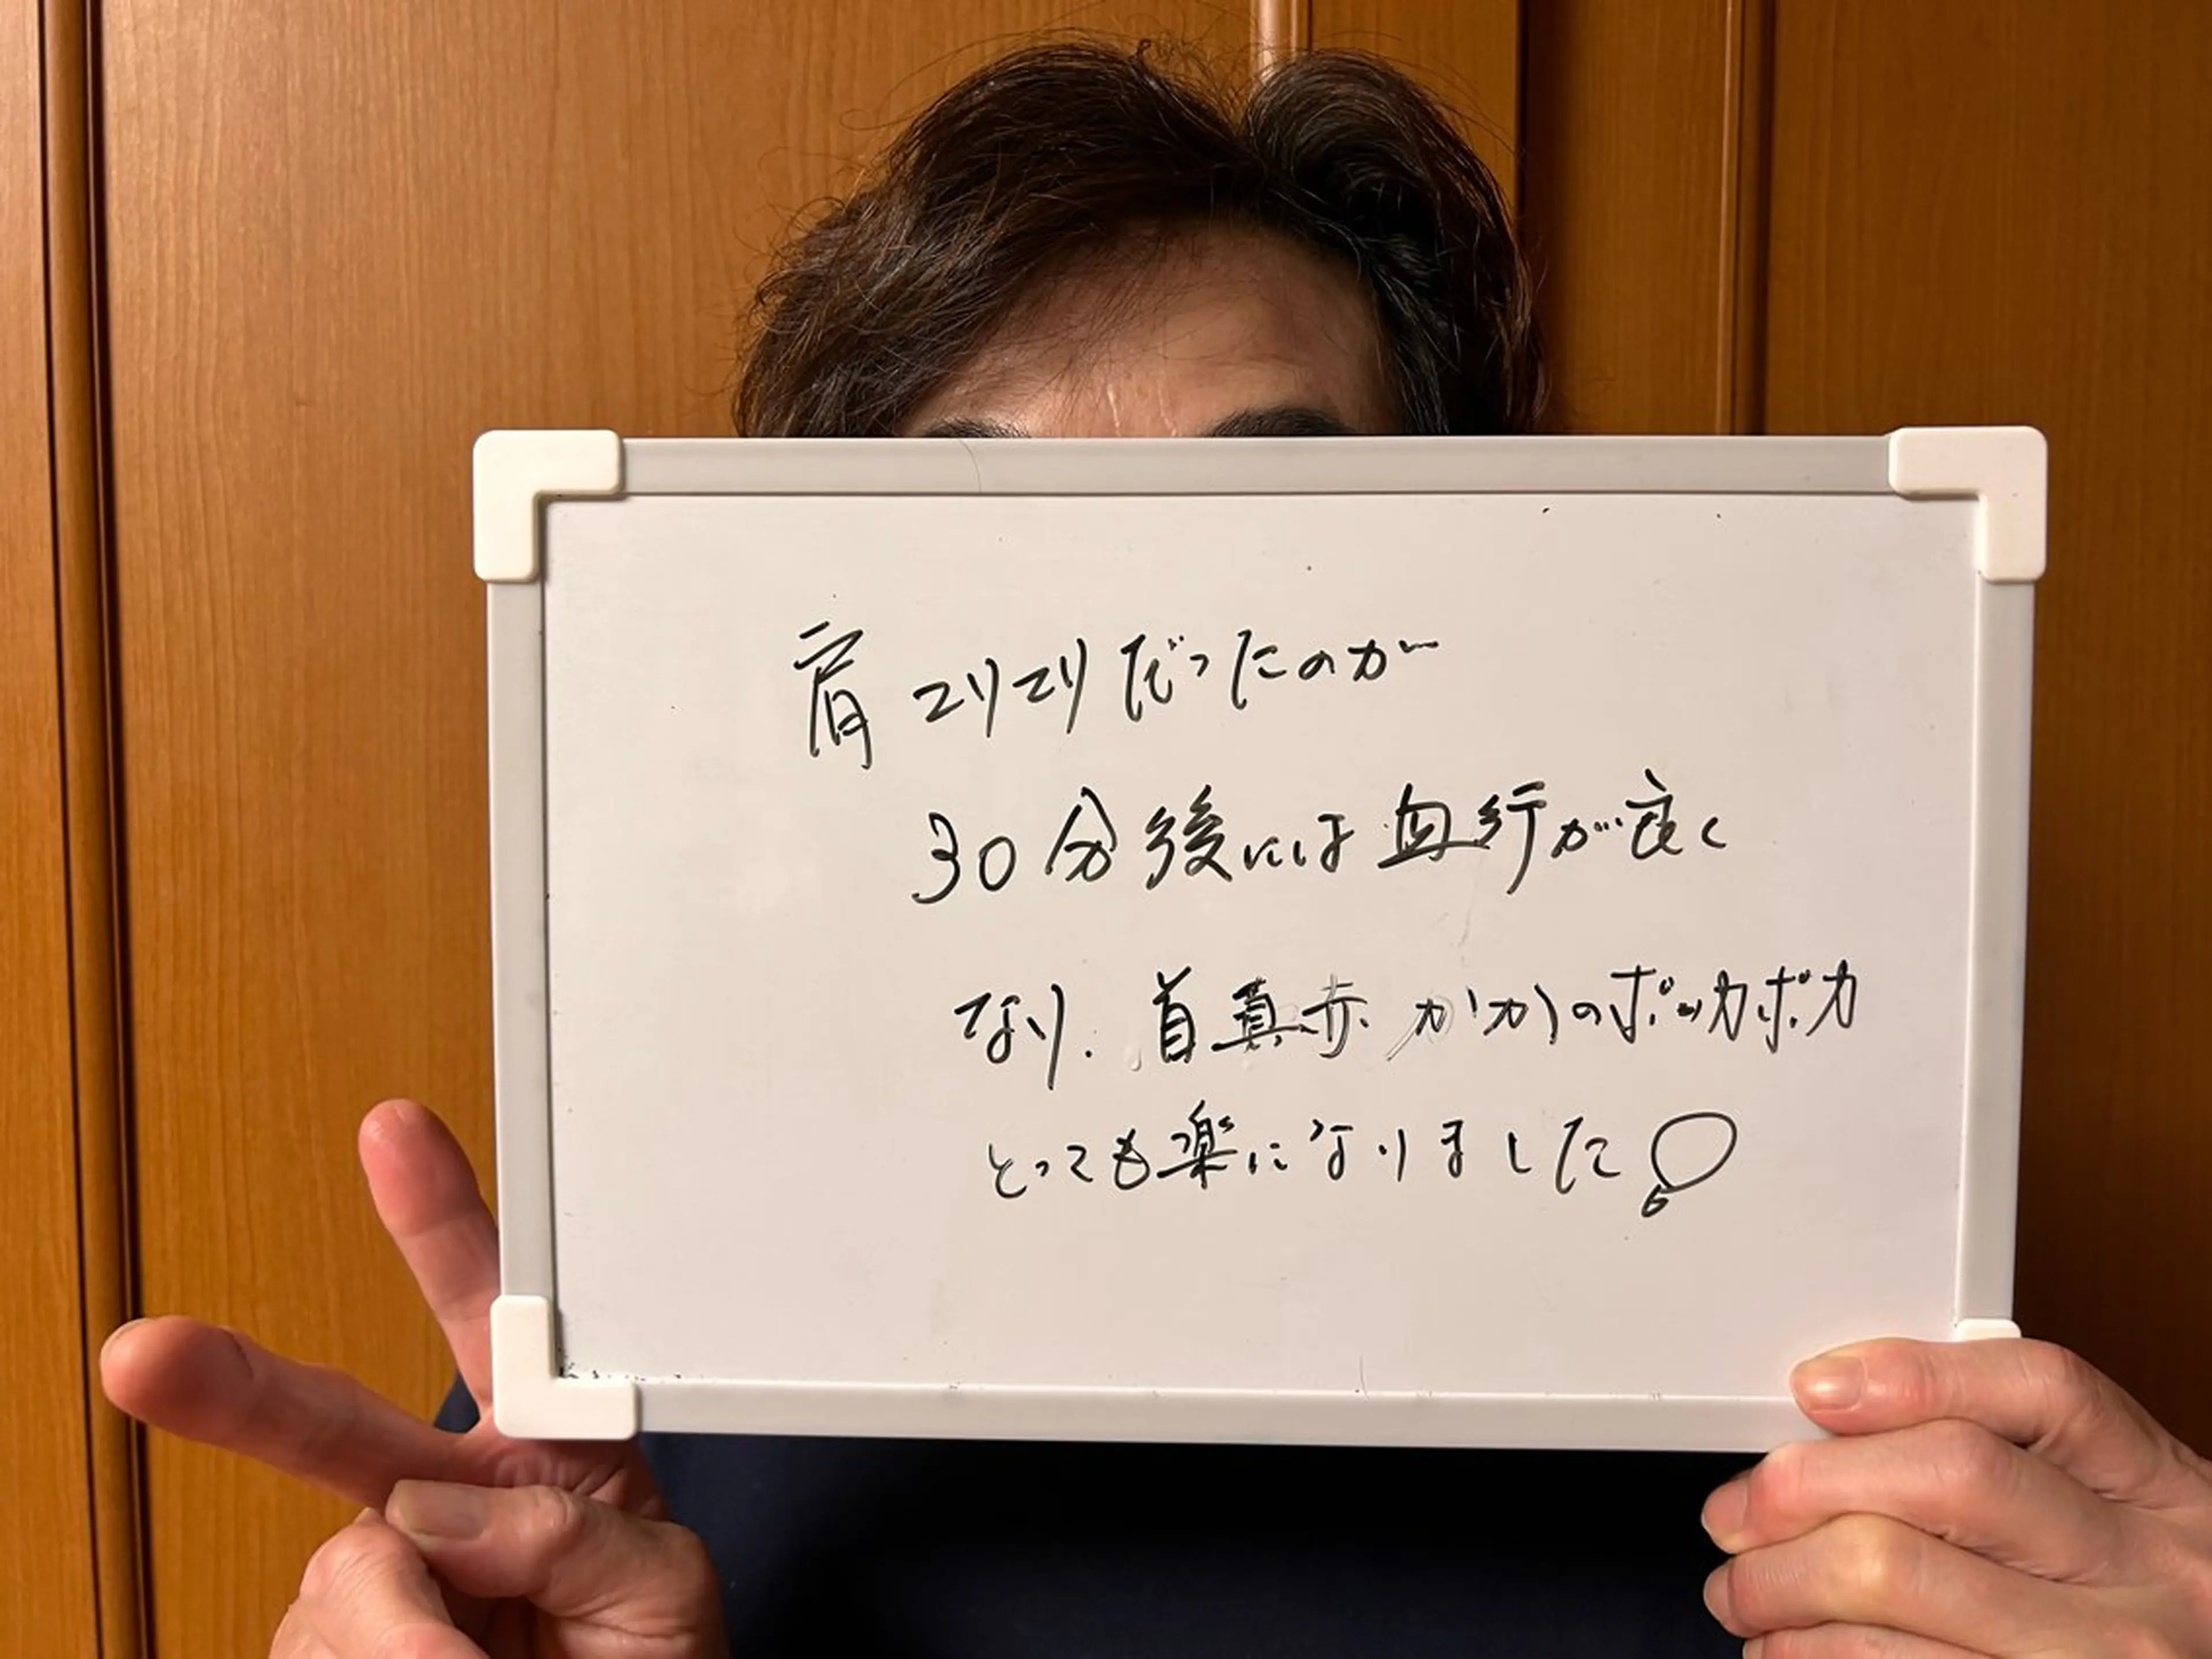 肩コリコリだったのが
30分後には血行が良く
なり.首真赤かかのポッカポカ
とっても楽になりました!